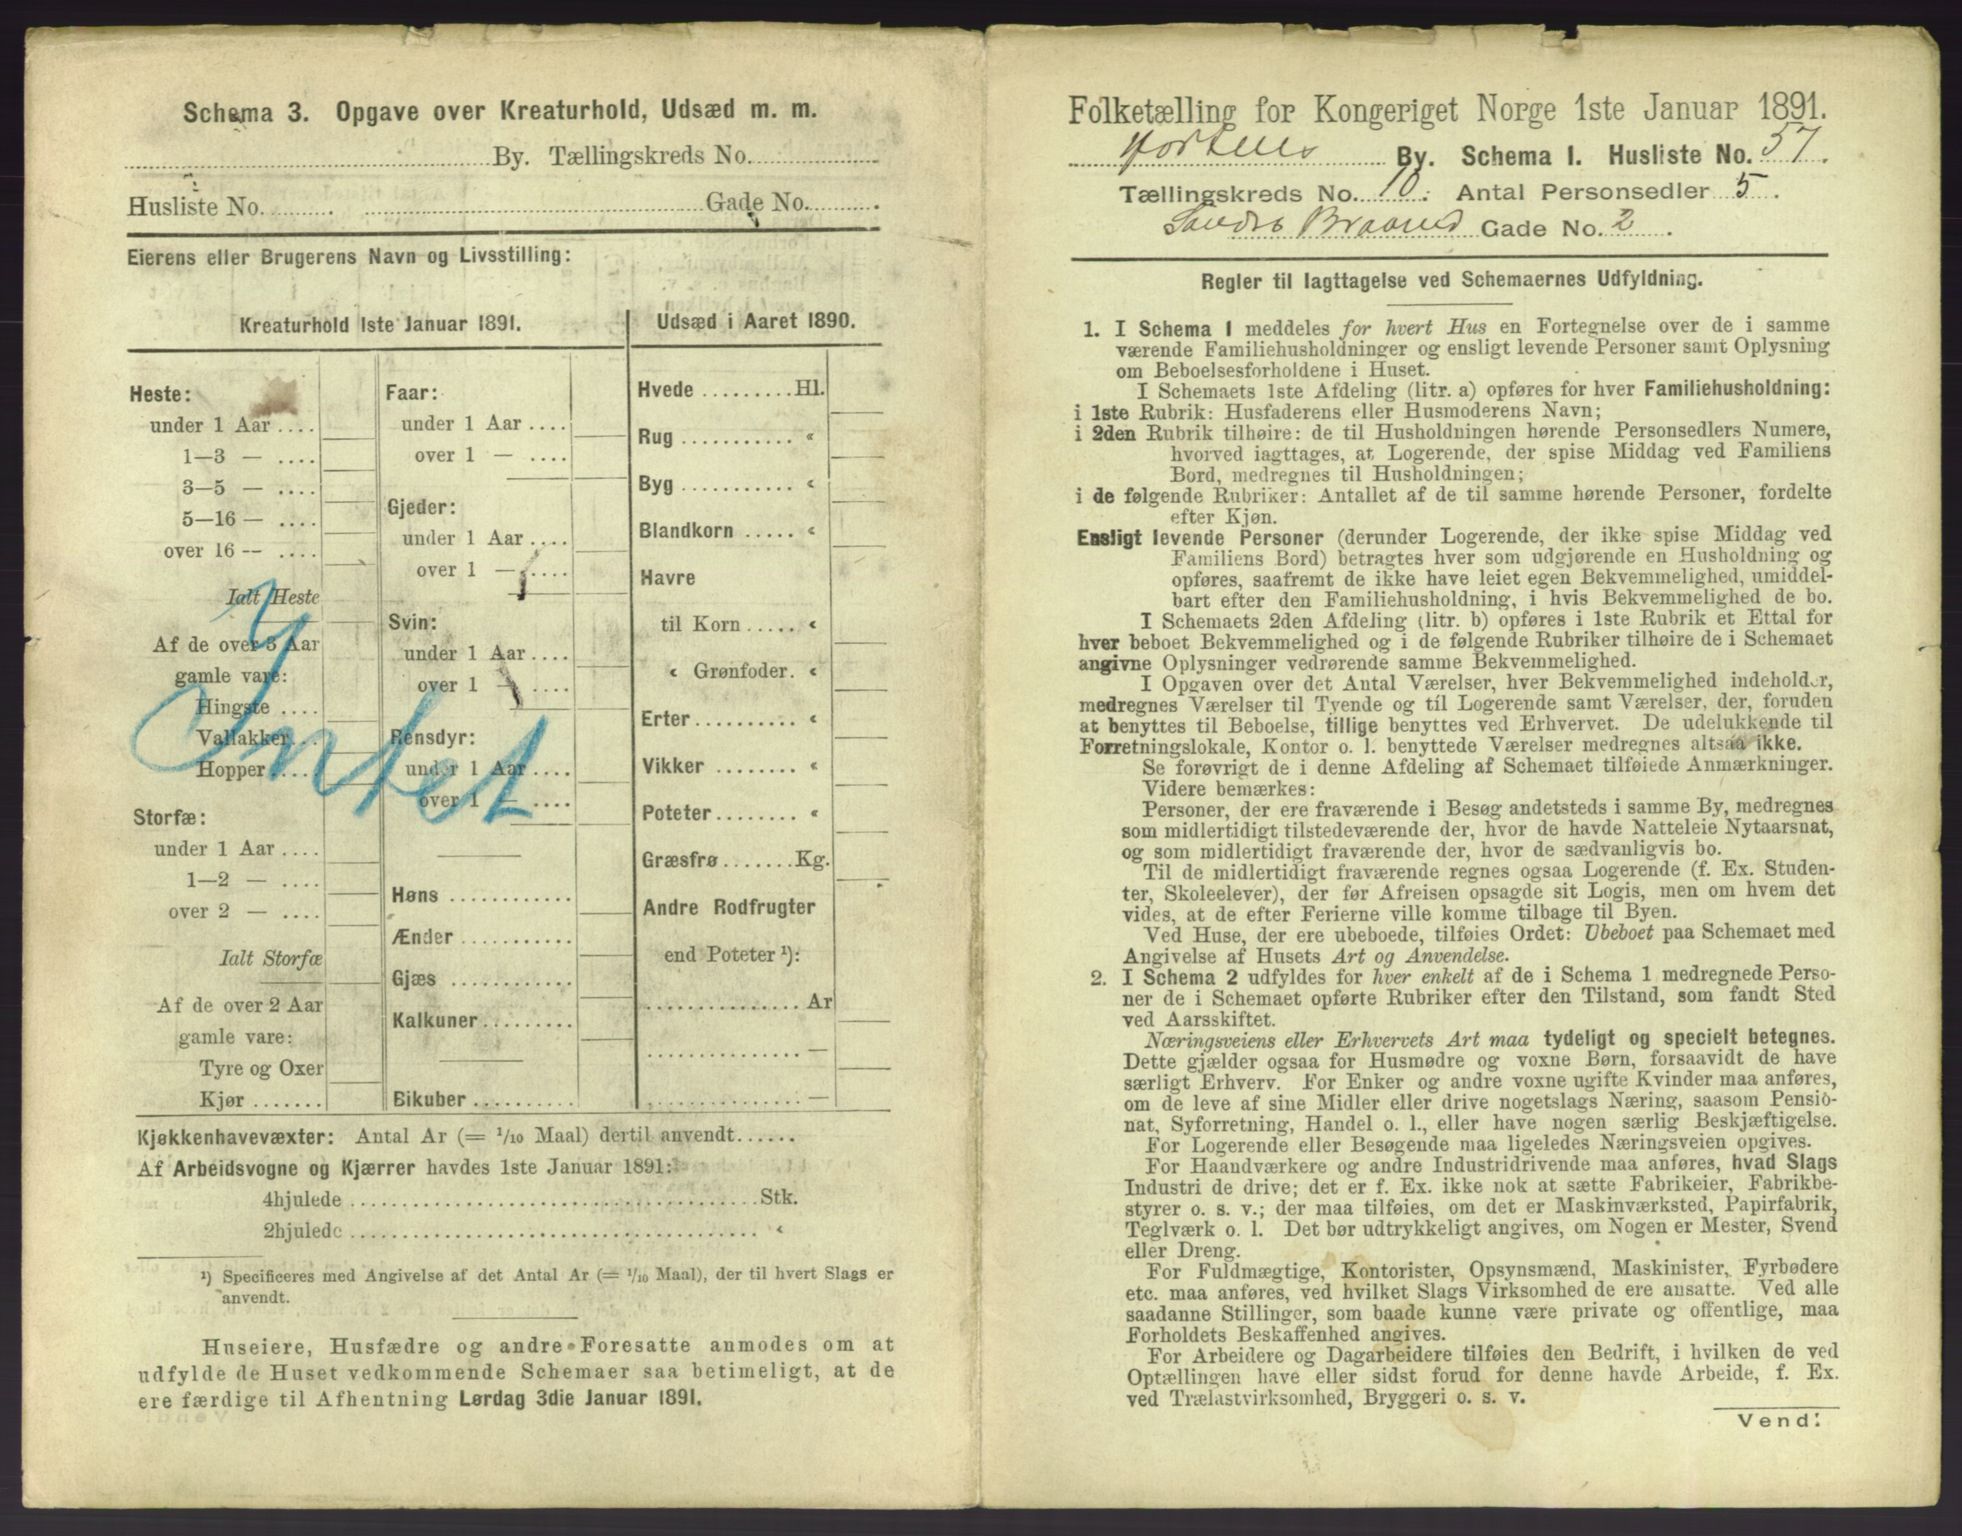 Schema 3. Opgave over Kreaturhold, Udsæd m. m.
By. Tællingskreds No.
Husliste No. Gade No.
Eierens eller Brugerens Navn og Livsstilling:
Kreaturhold 1ste Januar 1891.
Heste:
under 1 Aar
1—3 —
3—5 —
5—16 —
over 16 —
Ialt Heste
Af de over 3 Aar
gamle vare:
Hingste
Vallakker
Hopper
Storfæ:
under 1 Aar
1—2 —
over 2 —
Ialt Storfæ
Af de over 2 Aar
gamle vare:
Tyre og Oxer
Kjør
Faar:
under 1 Aar
over 1 —
Gjeder:
under 1 Aar
over 1 —
Svin:
under 1 Aar
over 1 —
Rensdyr:
under 1 Aar
over 1 —
Høns
Ænder
Gjæs
Kalkuner
Bikuber
Intet
Udsæd i Aaret 1890.
Hvede Hl.
Rug «
Byg «
Blandkorn «
Havre
til Korn «
« Grønfoder «
Erter «
Vikker «
Poteter «
Græsfrø Kg.
Andre Rodfrugter
end Poteter ¹):
Ar
—
—
Kjøkkenhavevæxter: Antal Ar (= 1/10 Maal) dertil anvendt
Af Arbeidsvogne og Kjærrer havdes 1ste Januar 1891:
4hjulede Stk.
2hjulede «
¹) Specificeres med Angivelse af det Antal Ar (= 1/10 Maal), der til hvert Slags er
anvendt.
Huseiere, Husfædre og andre Foresatte anmodes om at
udfylde de Huset vedkommende Schemaer saa betimeligt, at de
ere færdige til Afhentning Lørdag 3die Januar 1891.
Folketælling for Kongeriget Norge 1ste Januar 1891.
Hortens By. Schema 1. Husliste No. 57.
Tællingskreds No. 10. Antal Personsedler 5.
Søndre Braarud Gade No. 2.
Regler til Iagttagelse ved Schemaernes Udfyldning.
1. I Schema 1 meddeles for hvert Hus en Fortegnelse over de i samme
værende Familiehusholdninger og ensligt levende Personer samt Oplysning
om Beboelsesforholdene i Huset.
I Schemaets 1ste Afdeling (litr. a) opføres for hver Familiehusholdning:
i 1ste Rubrik: Husfaderens eller Husmoderens Navn;
i 2den Rubrik tilhøire: de til Husholdningen hørende Personsedlers Numere,
hvorved iagttages, at Logerende, der spise Middag ved Familiens
Bord, medregnes til Husholdningen;
i de følgende Rubriker: Antallet af de til samme hørende Personer, fordelte
efter Kjøn.
Ensligt levende Personer (derunder Logerende, der ikke spise Middag ved
Familiens Bord) betragtes hver som udgjørende en Husholdning og
opføres, saafremt de ikke have leiet egen Bekvemmelighed, umiddel-
bart efter den Familiehusholdning, i hvis Bekvemmelighed de bo.
I Schemaets 2den Afdeling (litr. b) opføres i 1ste Rubrik et Ettal for
hver beboet Bekvemmelighed og i de følgende Rubriker tilhøire de i Schemaet
angivne Oplysninger vedrørende samme Bekvemmelighed.
I Opgaven over det Antal Værelser, hver Bekvemmelighed indeholder,
medregnes Værelser til Tyende og til Logerende samt Værelser, der, foruden
at benyttes til Beboelse, tillige benyttes ved Erhvervet. De udelukkende til
Forretningslokale, Kontor o. l. benyttede Værelser medregnes altsaa ikke.
Se forøvrigt de i denne Afdeling af Schemaet tilføiede Anmærkninger.
Videre bemærkes:
Personer, der ere fraværende i Besøg andetsteds i samme By, medregnes
som midlertidigt tilstedeværende der, hvor de havde Natteleie Nytaarsnat,
og som midlertidigt fraværende der, hvor de sædvanligvis bo.
Til de midlertidigt fraværende regnes ogsaa Logerende (f. Ex. Studen-
ter, Skoleelever), der før Afreisen opsagde sit Logis, men om hvem det
vides, at de efter Ferierne ville komme tilbage til Byen.
Ved Huse, der ere ubeboede, tilføies Ordet: Ubeboet paa Schemaet med
Angivelse af Husets Art og Anvendelse.
2. I Schema 2 udfyldes for hver enkelt af de i Schema 1 medregnede Perso-
ner de i Schemaet opførte Rubriker efter den Tilstand, som fandt Sted
ved Aarsskiftet.
Næringsveiens eller Erhvervets Art maa tydeligt og specielt betegnes.
Dette gjælder ogsaa for Husmødre og voxne Børn, forsaavidt de have
særligt Erhverv. For Enker og andre voxne ugifte Kvinder maa anføres,
om de leve af sine Midler eller drive nogetslags Næring, saasom Pensio-
nat, Syforretning, Handel o. l., eller have nogen særlig Beskjæftigelse.
For Logerende eller Besøgende maa ligeledes Næringsveien opgives.
For Haandværkere og andre Industridrivende maa anføres, hvad Slags
Industri de drive; det er f. Ex. ikke nok at sætte Fabrikeier, Fabrikbe-
styrer o. s. v.; der maa tilføies, om det er Maskinværksted, Papirfabrik,
Teglværk o. l. Det bør udtrykkeligt angives, om Nogen er Mester, Svend
eller Dreng.
For Fuldmægtige, Kontorister, Opsynsmænd, Maskinister, Fyrbødere
etc. maa anføres, ved hvilket Slags Virksomhed de ere ansatte. Ved alle
saadanne Stillinger, som baade kunne være private og offentlige, maa
Forholdets Beskaffenhed angives.
For Arbeidere og Dagarbeidere tilføies den Bedrift, i hvilken de ved
Optællingen have eller sidst forud for denne havde Arbeide, f. Ex.
ved Trælastvirksomhed, Bryggeri o. s. v.
Vend!